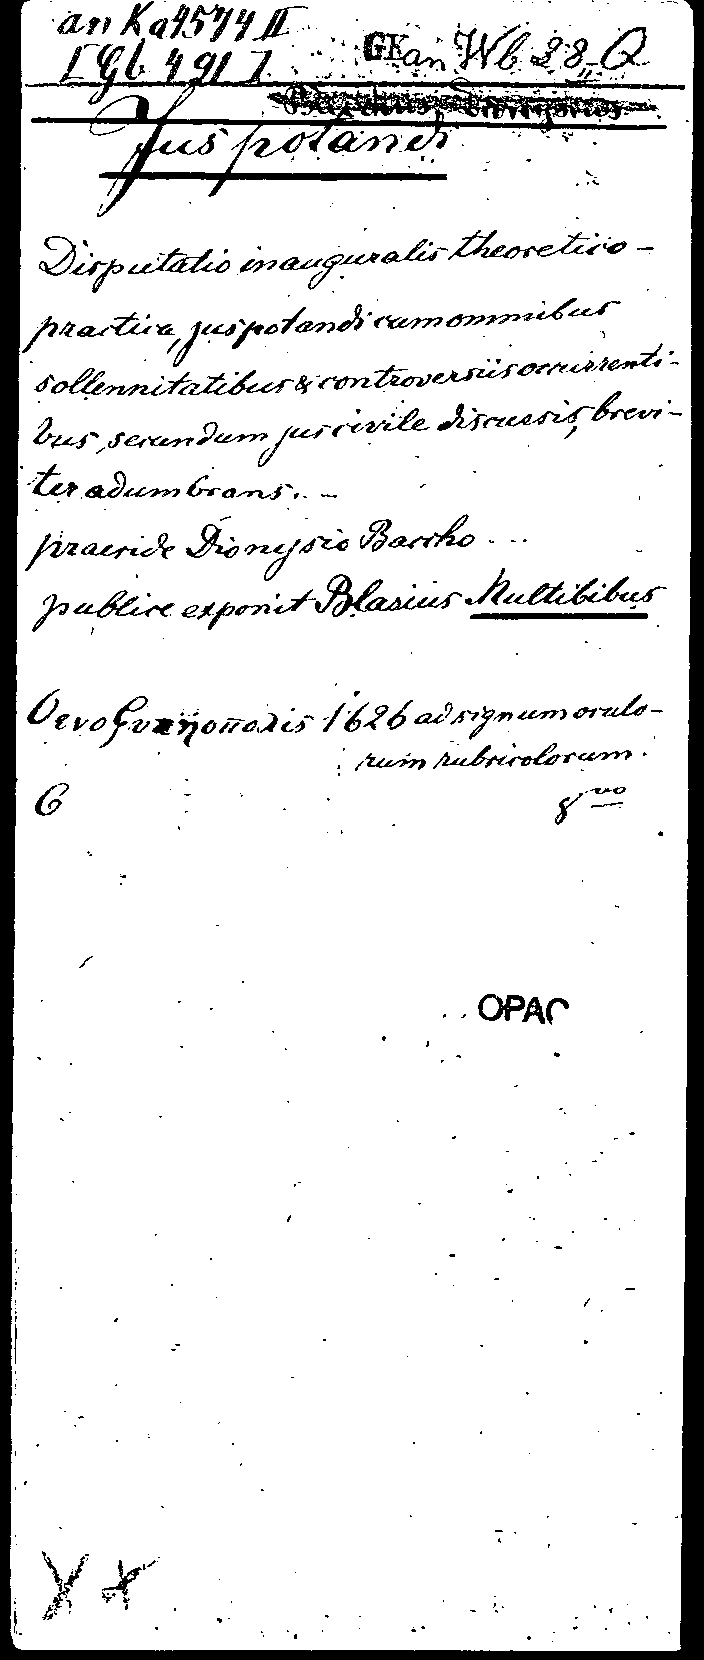 an Ka 4574 II
GK an Wb 28 Q
I Gb 491 I
Bacchus, Dionysius
Jus potandi
Disputatio inauguralis theoretico-
practica, jus potandi cum omnibus
sollennitatibus & controversiis occurrenti-
bus, secundum jus civile discussis, brevi-
ter adumbrans. -
praeside Dionysio Baccho ...
publice exponit Blasius Multibibus
1626 ad signum oculo-
rum rubricolorum.
6
8vo
OPAC